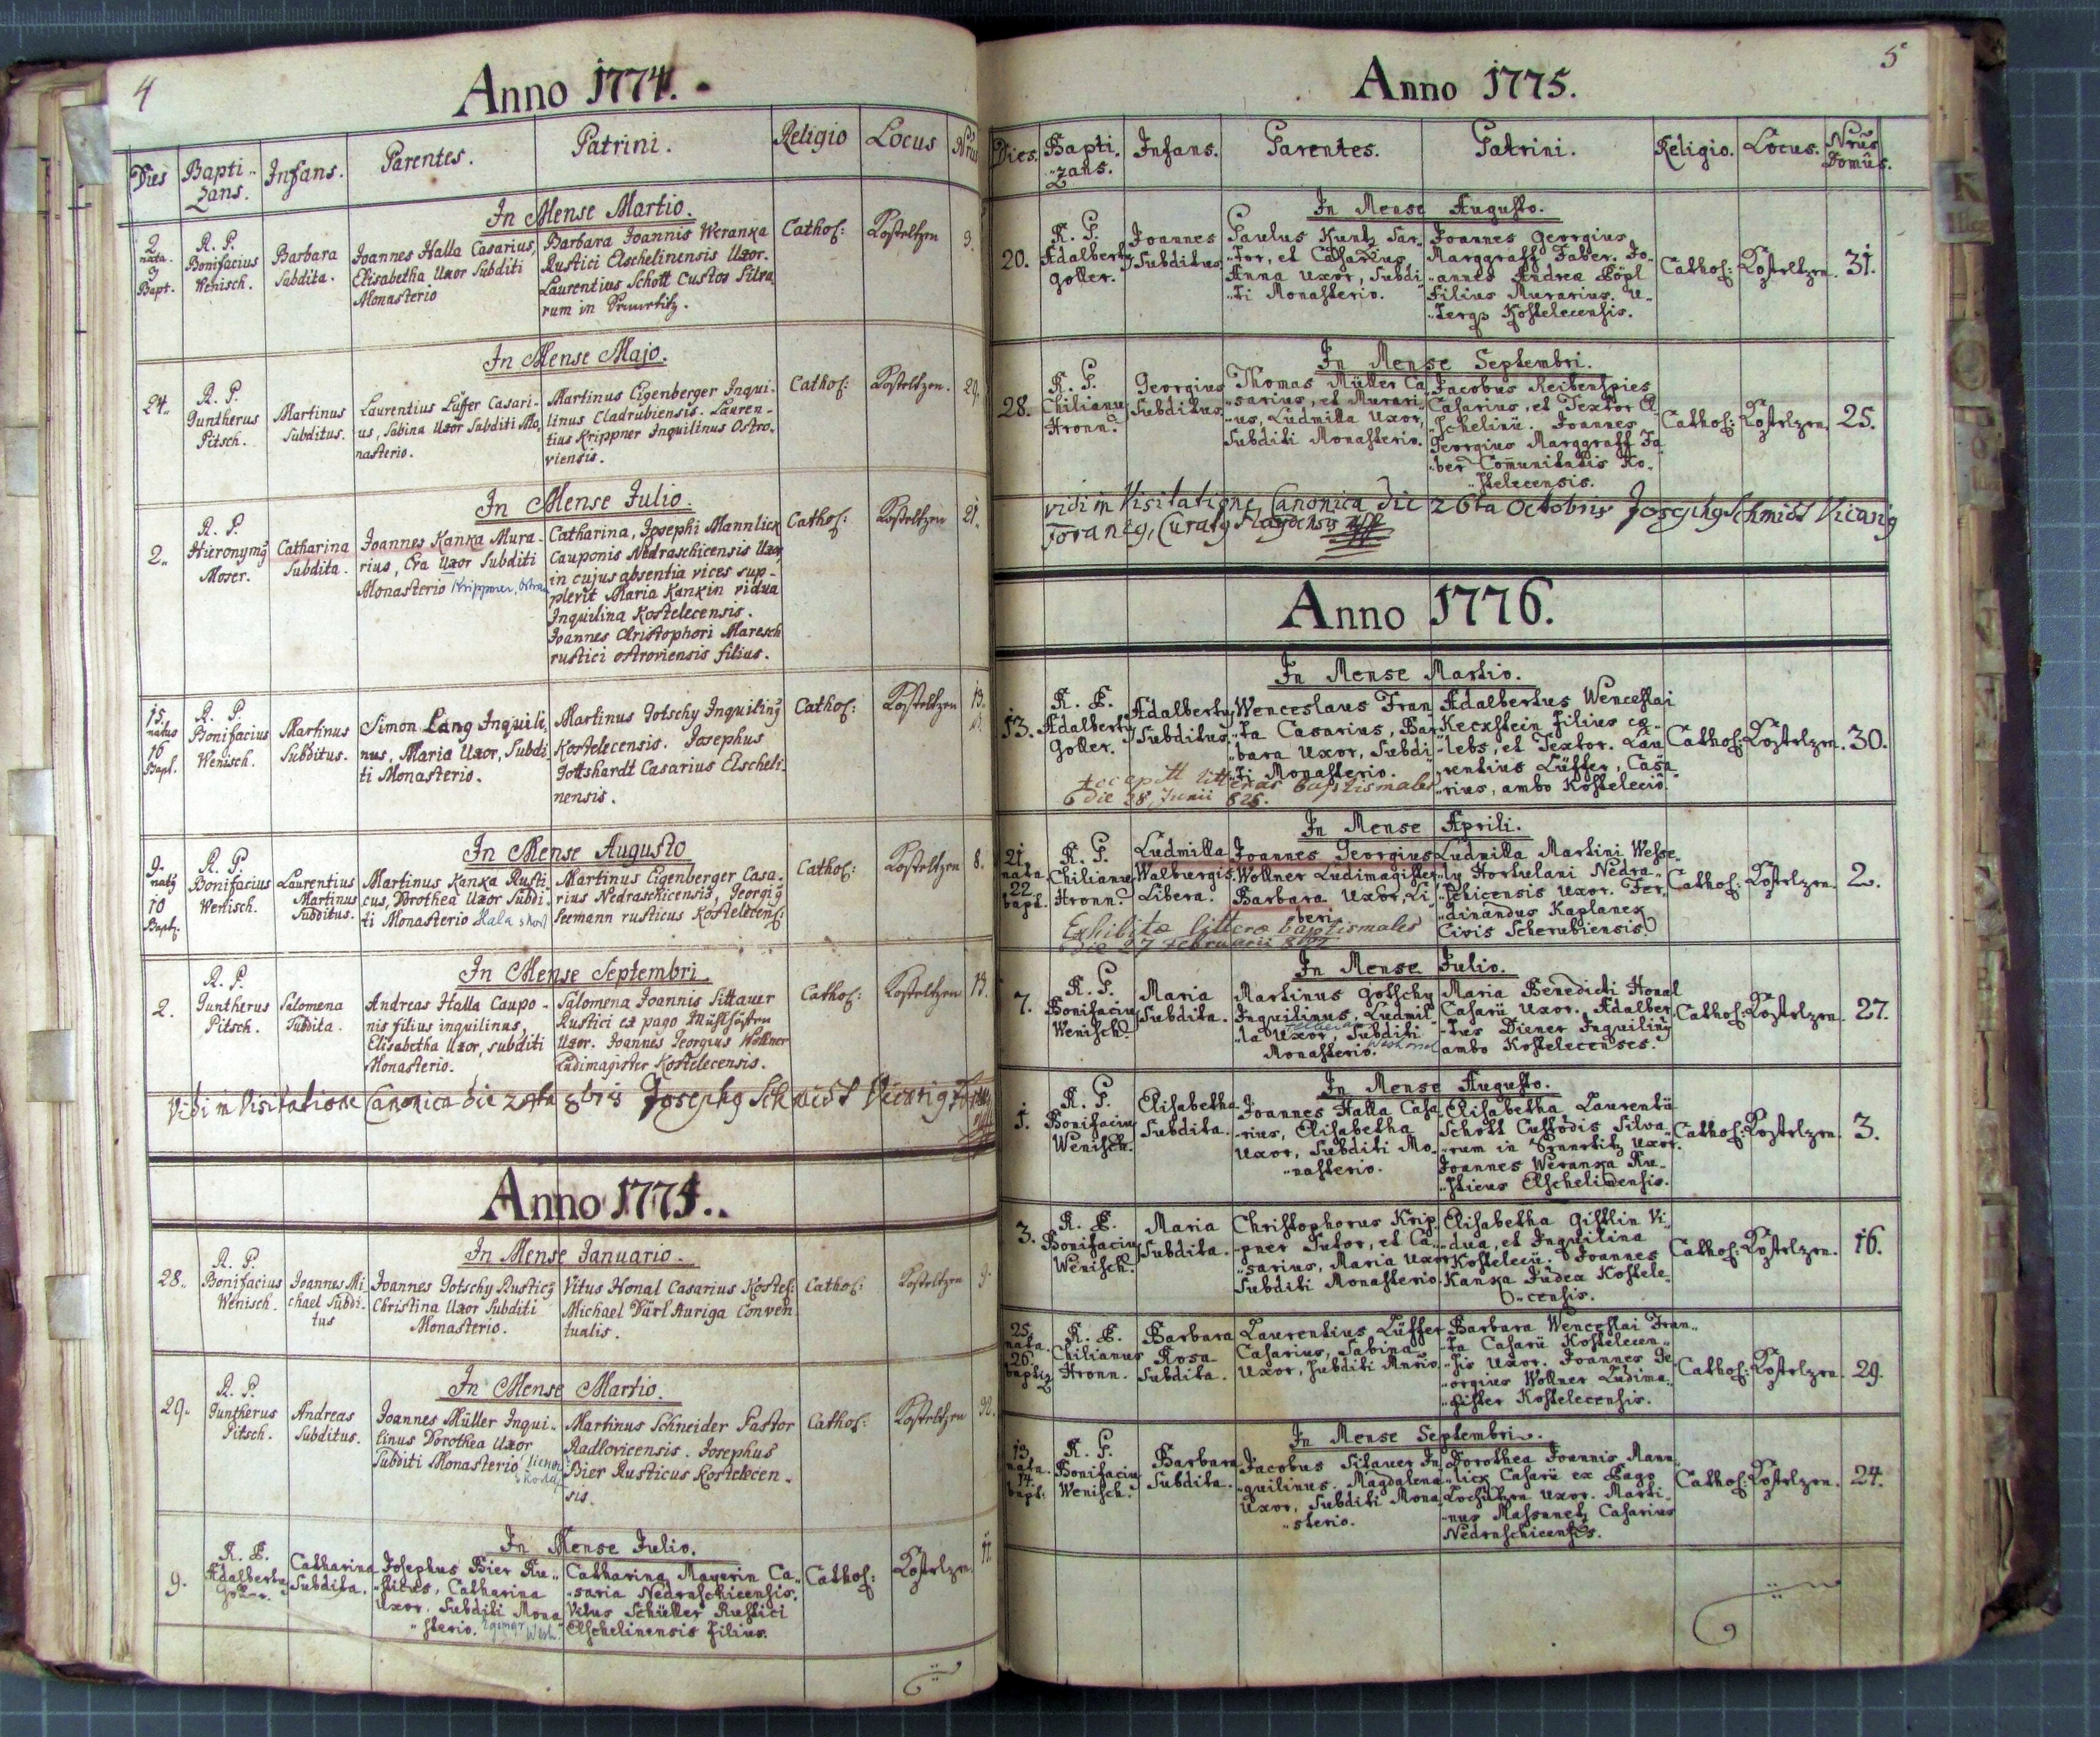 4
Anno 1774.
Dies
Bapti-
zans.
Infans.
Parentes.
Patrini.
Religio
Locus
In Mense Martio.
2
nata.
3
Bapt.
R. P.
Bonifacius
Wenisch.
Barbara
Subdita.
Joannes Halla Casarius,
Elisabetha Uxor Subditi
Monasterio
Barbara Joannis Weranka
Rustici Elschelinensis Uxor.
Laurentius Schott Custos Silva
rum in
Cathol:
Kosteltzen
3.
In Mense Majo.
24.
R. P.
Guntherus
Pitsch.
Martinus
Subditus.
Laurentius Lüffer Casari-
us, Sabina Uxor Subditi Mo-
nasterio.
Martinus Eigenberger Inqui-
linus Cladrubiensis. Lauren-
tius Krippner Inquilinus Ostro-
viensis.
Cathol:
Kosteltzen.
29.
In Mense Julio.
2.
R. P.
Hieronymg
Moser.
Catharina
Subdita.
Joannes Kanka Mura-
rius, Eva Uxor Subditi
Monasterio Krippner,
Catharina, Josephi Mannlick
Cauponis Nedraschicensis Uxor,
in cujus absentia vices sup-
plevit Maria Kankin vidua
Inquilina Kostelecensis.
Joannes Christophori Maresch
rustici ostroviensis filius.
Cathol:
Kosteltzen
21.
15.
natus
16
Bapt.
R. P.
Bonifacius
Wenisch.
Martinus
Subditus.
Simon Lang Inquili
nus, Maria Uxor, Subdi
ti Monasterio.
Martinus Gotschy Inquiling
Kostelecensis. Josephus
Gottshardt Casarius Elscheli-
nensis.
Cathol:
Kosteltzen
In Mense Augusto
9.
natg
10
Bapt.
R. P.
Bonifacius
Wenisch.
Laurentius
Martinus
Subditus.
Martinus Kanka Rusti-
cus, Dorothea Uxor Subdi-
ti Monasterio Hala
Martinus Eigenberger Casa-
rius Nedraschicensis, Georgig
Seemann rusticus Kostelecens:
Cathol:
Kosteltzen
8.
In Mense Septembri
2.
R. P.
Guntherus
Pitsch.
Salomena
Subdita.
Andreas Halla Caupo-
nis filius inquilinus,
Elisabetha Uxor, subditi
Monasterio.
Salomena Joannis Sittauer
Rustici ex pago
Uxor. Joannes Georgius Wollner
Ludimagister Kostelecensis.
Cathol:
Kosteltzen
Vidi in Visitatione Canonica die 8bris Josephg Schmidt Vicarig
Anno 1775.
In Mense Januario.
28.
R. P.
Bonifacius
Wenisch.
Joannes Mi-
chael Subdi-
tus
Joannes Gotschy Rusticg
Christina Uxor Subditi
Monasterio.
Vitus Honal Casarius Kostel:
Michael Därl Auriga Conven
tualis.
Cathol:
Kosteltzen
In Mense Martio.
29.
R. P.
Guntherus
Pitsch.
Andreas
Subditus.
Joannes Müller Inqui-
linus Dorothea Uxor
Subditi Monasterio
Martinus Schneider Pastor
Radlovicensis. Josephus
Bier Rusticus Kostelecen-
sis.
Cathol:
Kosteltzen
In Mense Julio.
9.
R. P.
Adalbertg
Goller.
Catharina
Subdita.
Josephus Bier Ru-
sticus, Catharina
Uxor, Subditi Mona
sterio.
Catharina Mayerin Ca-
saria Nedraschicensis.
Vitus Schüller Rustici
Elschelinensis filius.
Cathol:
Kosteltzen.
5
Anno 1775.
Dies.
Bapti-
zans.
Infans.
Parentes.
Patrini.
Religio.
Locus.
Nrus
Domûs.
In Mense Augusto.
20.
R. P.
Adalbertg
Goller.
Joannes
Subditus
Paulus Kuntz Sar-
tor, et Casarius
Anna Uxor, Subdi-
ti Monasterio.
Joannes Georgius
Marggraff Faber. Jo-
annes Andrea Pöpl
Filius Murarius. U-
terqs Kostelecensis.
Cathol:
Kosteltzen.
31.
In Mense Septembri.
28.
R. P.
Chilianus
Hronn.
Georgius
Subditus
Thomas Müller Ca
sarius, et Murari-
us, Ludmilla Uxor,
Subditi Monasterio.
Jacobus Reitenspies
Casarius, et Textor El-
schelinii. Joannes
Georgius Marggraff Fa
ber Communitatis Ko-
stelecensis.
Cathol:
Kosteltzen.
25.
vidi in Visitatione Canonica die 26ta Octobris Josephg Schmidt Vicarig
Foraneg, Curatg
Anno 1776.
In Mense Martio.
13.
R. P.
Adalbertg
Goller.
Adalbertg
Subditus.
Wenceslaus Fran
ta Casarius, Bar
bara Uxor, Subdi-
ti Monasterio.
Adalbertus Wenceslai
Keckstein filius cæ-
lebs, et Textor. Lau
rentius Lüffer, Casa
rius, ambo Kostelecii.
Cathol:
Kosteltzen.
30.
accepitt litteras baptismales
die 28 Junii 828.
In Mense Aprili.
21.
nata
22.
bapt.
R. P.
Chilianus
Hronn.
Ludmilla
Walburgis
Libera.
Joannes Georgius
Wollner Ludimagister
Barbara Uxor, Li-
beri
Ludmilla Martini Wesse-
ly Hortulani Nedra-
schicensis Uxor. Fer-
dinandus Kaplanek
Civis Scherubiensis.
Cathol:
Kosteltzen.
2.
Exhibitæ litteræ baptismales
die 27 Februarii
In Mense Julio.
7.
R. P.
Bonifacius
Wenisch.
Maria
Subdita.
Martinus Gotschy
Inquilinus, Ludmil-
la Uxor, Subditi
Monasterio.
Maria Benedicti Honal
Casarii Uxor. Adalber-
tus Diener Inquiling
ambo Kostelecenses.
Cathol:
Kosteltzen.
27.
In Mense Augusto.
1.
R. P.
Bonifacius
Wenisch.
Elisabetha
Subdita.
Joannes Halla Casa-
rius, Elisabetha
Uxor, Subditi Mo-
nasterio.
Elisabetha Laurentii
Schott Custodis Silva-
rum in Uxor.
Joannes Weranka Ru-
sticus Elschelinensis.
Cathol:
Kosteltzen.
3.
3.
R. P.
Bonifacius
Wenisch.
Maria
Subdita.
Christophorus Krip-
pner Sutor, et Ca-
sarius, Maria Uxor
Subditi Monasterio.
Elisabetha Gistlin Vi-
dua, et Inquilina
Kostelecii. Joannes
Kanka Judex Kostele-
censis.
Cathol:
Kosteltzen.
16.
25.
nata.
26.
baptiz
R. P.
Chilianus
Hronn.
Barbara
Rosa
Subdita.
Laurentius Lüffer
Casarius, Sabina
Uxor, Subditi Mnrio.
Barbara Wenceslai Fran-
ta Casarii Kostelecen-
sis Uxor. Joannes Ge-
orgius Wollner Ludima-
gister Kostelecensis.
Cathol:
Kosteltzen.
29.
In Mense Septembri.
13.
nata.
14.
bapt.
R. P.
Bonifacius
Wenisch.
Barbara
Subdita.
Jacobus Sitauer In
quilinus. Magdalena
Uxor, Subditi Mona
sterio.
Dorothea Joannis Mann-
lick Casarii ex Pago
Uxor. Marti-
nus Massanetz Casarius
Nedraschicensis.
Cathol:
Kosteltzen.
24.